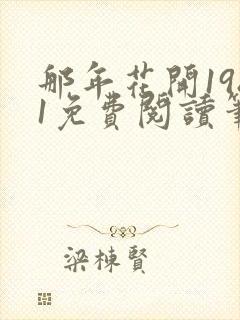 那年花開198
1免費閱讀筆
梁棟賢